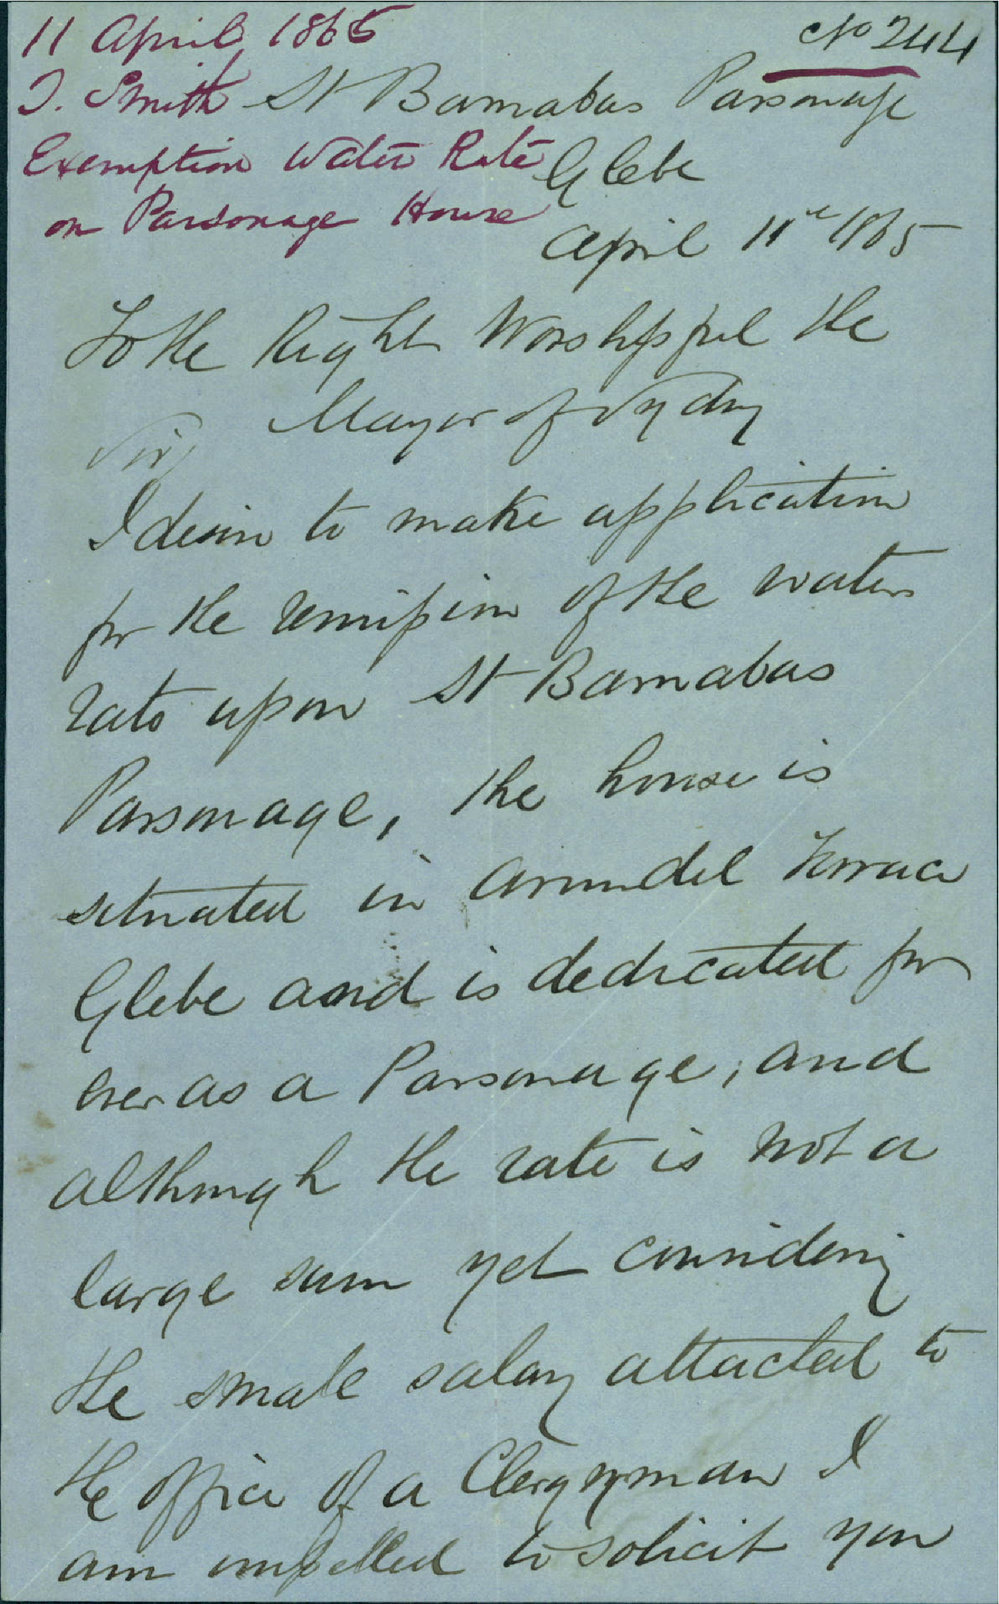 11 April 1865
No 244
T. Smith
Exemption Water Rate
on Parsonage House
St Barnabas Parsonage
Glebe
April 11th 1865
To the Right Worshipful the
Mayor of Sydney
Sir,
I desire to make application
for the remission of the water
rate upon St Barnabas
Parsonage, the house is
situated in Arundel Terrace
Glebe and is dedicated for
ever as a Parsonage; and
although the rate is not a
large sum yet considering
the small salary attacted to
the office of a Clergyman I
am impelled to solicit you